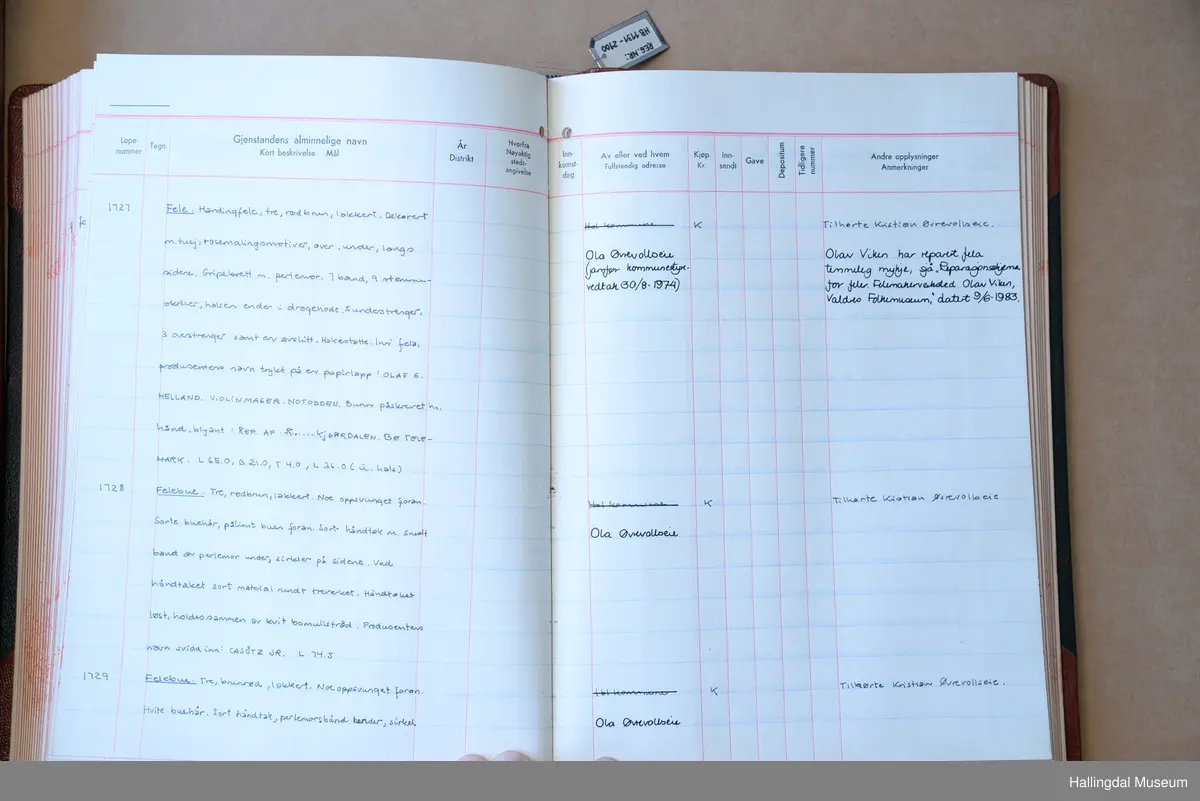 REG. NR:
HB 1131 - 2100
Løpe-
nummer
Tegn
Gjenstandens alminnelige navn
Kort beskrivelse Mål
År
Distrikt
Hvorfra
Nøyaktig
steds-
angivelse
Inn-
komst-
dag
Av eller ved hvem
Fullstendig adresse
Kjøp
Kr.
Inn-
sendt
Gave
Depositum
Tidligere
nummer
Andre opplysninger
Anmerkninger
1727
Fele. Hardingfele, tre, rødbrun, lakkert. Dekorert
m. tusj, rosemalingsmotiver, over, under, langs
sidene. Gripebrett m. perlemor. 7 bånd, 9 stemme-
skruer, halsen ender i dragehode. 5 understrenger,
3 overstrenger samt en avslitt. Hakestøtte. Inni fela,
produsentens navn trykt på en papirlapp: OLAF G.
HELLAND. VIOLINMAGER. NOTODDEN. Bunn påskrevet m.
hånd, blyant: REP. AF KJÆRDALEN. BØ TELE-
MARK. L 65.0, B 21.0, T 4.0, L 36.0 (u. hals)
Hol kommune
K
Tilhørte Kristian Øvrevollseie.
Ola Øvrevollseie
(jamfør kommunestyre-
vedtak 30/8-1974)
Olav Viken har reparit fela
temmelig mykje, sjå "Reparasjonsskjema
for feler. Felemakerverksted Olav Viken,
Valdres Folkemuseum," datert 9/6-1983.
1728
Felebue. Tre, rødbrun, lakkert. Noe oppsvunget foran.
Sorte buehår, pålimt buen foran. Sort håndtak m. smalt
bånd av perlemor under, sirkler på sidene. Ved
håndtaket sort material rundt treverket. Håndtaket
løst, holdes sammen av hvit bomullstråd. Produsentens
navn svidd inn: L 74.5
Hol kommune
K
Tilhørte Kristian Øvrevollseie
Ola Øvrevollseie
1729
Felebue. Tre, brunrød, lakkert. Noe oppsvunget foran.
Hvite buehår. Sort håndtak, perlemorsbånd under, sirkel
Hol kommune
K
Tilhørte Kristian Øvrevollseie.
Ola Øvrevollseie
Hallingdal Museum